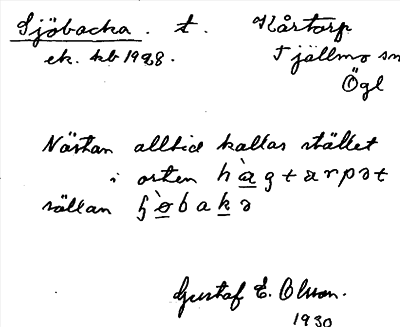 Sjöbacka. t. Kårtorp
ek. kb 1928. Tjällmo sn
Ögl
Nästan alltid kallas stället
i orten hàgtarpət
sällan ʃòbakə
Gustaf E. Olsson.
1930